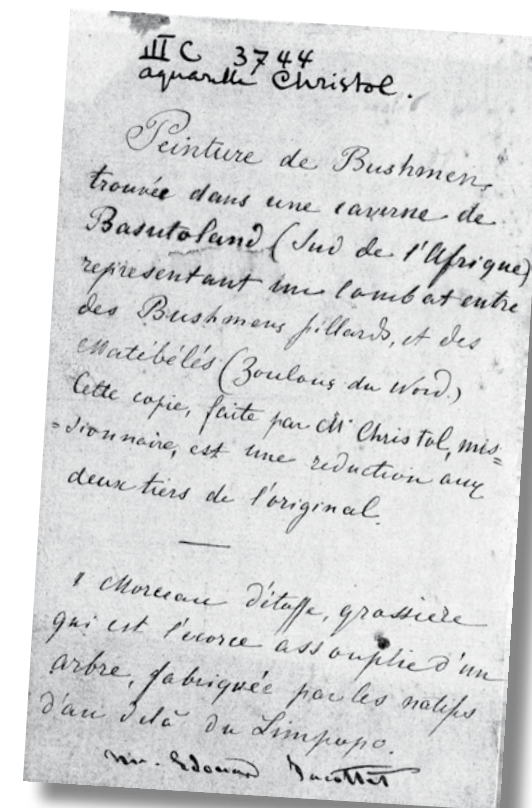 III C 3744
aquarelle Christol.
Peinture de Bushmens
trouvée dans une caverne de
Basutoland (Sud de l'Afrique)
représentant un combat entre
des Bushmens pillards, et des
Matébélés (Zoulous du Nord.)
Cette copie, faite par Mr Christol, mis=
=sionnaire, est une réduction aux
deux tiers de l'original.
1 Morceau d'étoffe, grossière
qui est l'écorce assouplie d'un
arbre, fabriquée par les natifs
d'au delà du Limpopo.
Edouard Jacottet